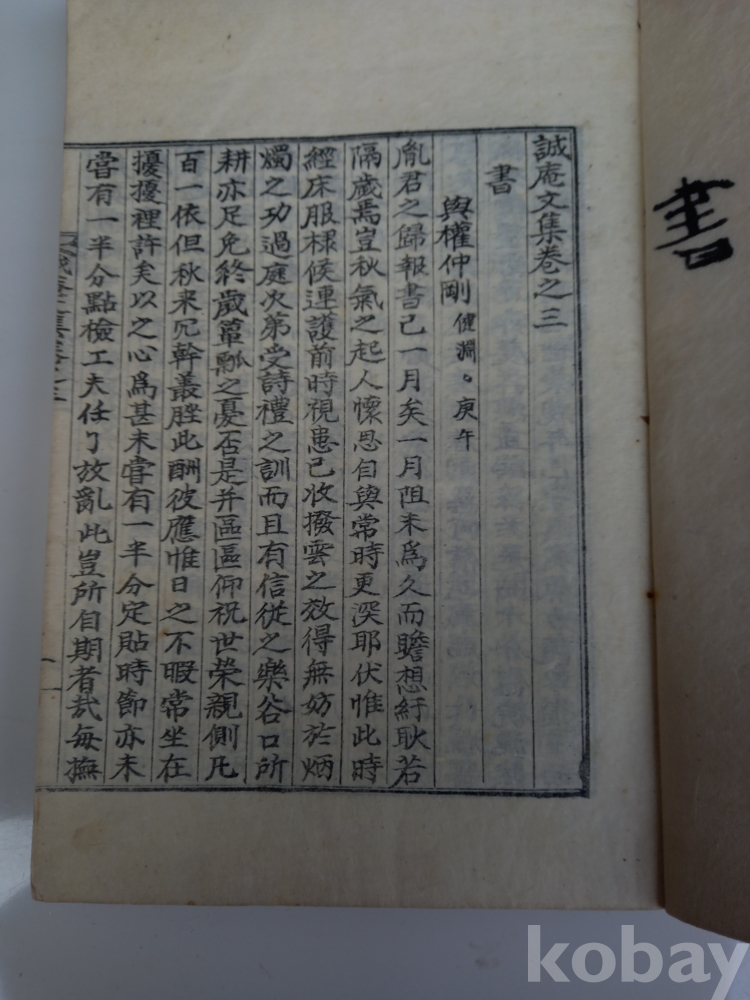 誠庵文集卷之三
書
與權仲剛 健淵。庚午
胤君之歸報書已一月矣一月阻未爲久而瞻想紆耿若
隔歲焉豈秋氣之起人懷思自與常時更深耶伏惟此時
經床服候連護前時視患已收撥雲之效得無妨於炳
燭之功過庭次第受詩禮之訓而且有信從之樂谷口所
耕亦足免終歲簞瓢之憂否是並區區仰祝世榮親側凡
百一依但秋來冗幹叢脞此酬彼應惟日之不暇常坐在
擾擾裡許矣以之心爲甚未嘗有一半分定貼時節亦未
嘗有一半分點檢工夫任了放亂此豈所自期者哉每撫
書
kobay